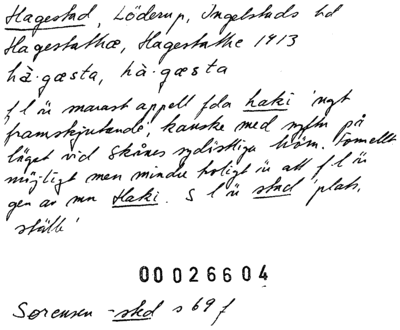 Hagestad, Löderup, Ingelstads hd
Hagestathæ, Hagestathe 1413
hà·gæsta, hà·gæsta
f l är snarast appell fda haki 'ngt
framskjutande', kanske med syftn på
läget vid Skånes sydöstliga hörn. Formellt
möjligt men mindre troligt är att f l är
gen av mn Haki. S l är stad 'plats,
ställe'
00026604
Sørensen -sted s 69 f